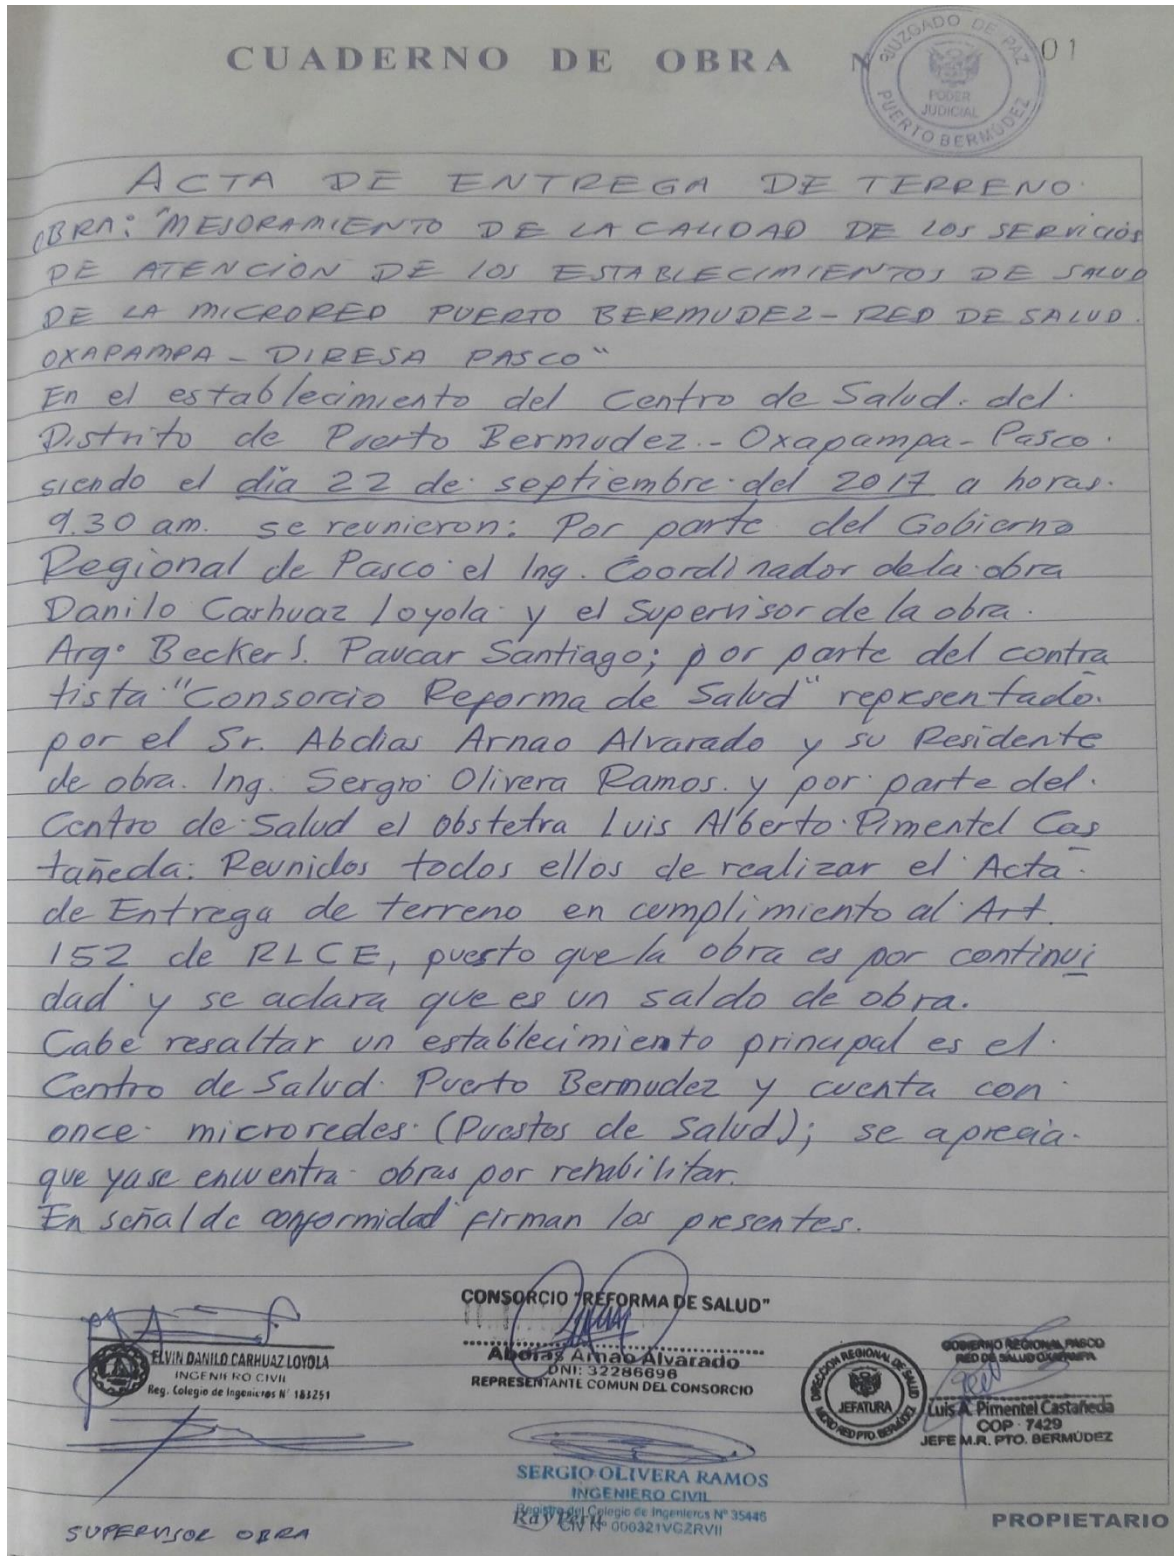 CUADERNO DE OBRA N 01
JUZGADO DE PAZ
PODER
JUDICIAL
PUERTO BERMÚDEZ
ACTA DE ENTREGA DE TERRENO.
OBRA: "MEJORAMIENTO DE LA CALIDAD DE LOS SERVICIOS
DE ATENCIÓN DE LOS ESTABLECIMIENTOS DE SALUD
DE LA MICRORED PUERTO BERMUDEZ - RED DE SALUD.
OXAPAMPA - DIRESA PASCO"
En el establecimiento del Centro de Salud. del.
Distrito de Puerto Bermudez - Oxapampa - Pasco.
siendo el día 22 de septiembre del 2017 a horas.
9.30 am. se reunieron: Por parte del Gobierno
Regional de Pasco el Ing. Coordinador de la obra
Danilo Carhuaz Loyola y el Supervisor de la obra.
Arqo Becker S. Paucar Santiago; por parte del contra
tista "Consorcio Reforma de Salud" representado.
por el Sr. Abdias Arnao Alvarado y su Residente
de obra. Ing. Sergio Olivera Ramos. y por parte del.
Centro de Salud el obstetra Luis Alberto Pimentel Cas
tañeda: Reunidos todos ellos de realizar el Acta
de Entrega de terreno en cumplimiento al Art.
152 de RLCE, puesto que la obra es por continui
dad y se aclara que es un saldo de obra.
Cabe resaltar un establecimiento principal es el.
Centro de Salud Puerto Bermudez y cuenta con
once microredes (Puestos de Salud); se aprecia.
que ya se encuentra obras por rehabilitar.
En señal de conformidad firman los presentes.
CONSORCIO "REFORMA DE SALUD"
Abdias Arnao Alvarado
DNI: 32286696
REPRESENTANTE COMUN DEL CONSORCIO
ELVIN DANILO CARHUAZ LOYOLA
INGENIERO CIVIL
Reg. Colegio de Ingenieros N° 183251
DIRECCION REGIONAL DE SALUD
JEFATURA
MICRO RED PTO. BERMÚDEZ
GOBIERNO REGIONAL PASCO
RED DE SALUD OXAPAMPA
Luis A. Pimentel Castañeda
COP - 7429
JEFE M.R. PTO. BERMÚDEZ
SERGIO OLIVERA RAMOS
INGENIERO CIVIL
Registro del Colegio de Ingenieros N° 35446
CIV N° 006321VCZRVII
Ray Perú
SUPERVISOR OBRA
PROPIETARIO